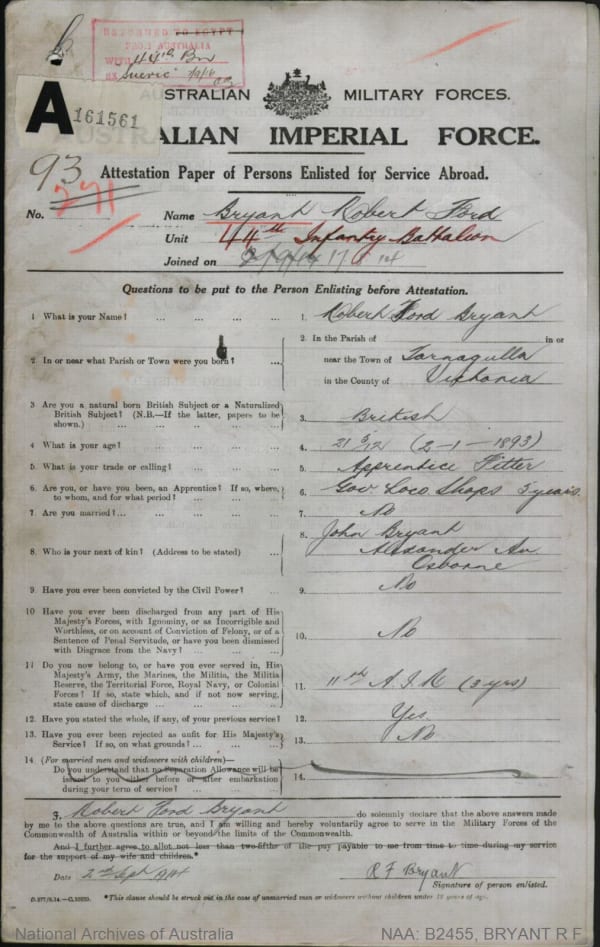 RETURNED TO EGYPT
FROM AUSTRALIA
WITH 44th Bn
"Sueric"
A 161561
AUSTRALIAN MILITARY FORCES.
AUSTRALIAN IMPERIAL FORCE.
93
271
Attestation Paper of Persons Enlisted for Service Abroad.
No. Name Bryant Robert Ford
Unit 44th Infantry Battalion
Joined on
Questions to be put to the Person Enlisting before Attestation.
1 What is your Name? ... ... ... ... 1. Robert Ford Bryant
2. In or near what Parish or Town were you born? ... 2. In the Parish of in or
near the Town of Tarnagulla
in the County of Victoria
3 Are you a natural born British Subject or a Naturalized
British Subject? (N.B.—If the latter, papers to be
shown.) ... ... ... ... ... 3. British
4. What is your age? ... ... ... ... 4. 21 9/12 (2-1-1893)
5. What is your trade or calling? ... ... ... 5. Apprentice Fitter
6. Are you, or have you been, an Apprentice? If so, where,
to whom, and for what period? ... ... 6. Gov Loco Shops 5 years
7. Are you married? ... ... ... ... 7. No
8. Who is your next of kin? (Address to be stated) ... 8. John Bryant
Alexander Av
Osborne
9. Have you ever been convicted by the Civil Power? ... 9. No
10 Have you ever been discharged from any part of His
Majesty's Forces, with Ignominy, or as Incorrigible and
Worthless, or on account of Conviction of Felony, or of a
Sentence of Penal Servitude, or have you been dismissed
with Disgrace from the Navy? ... ... 10. No
11 Do you now belong to, or have you ever served in, His
Majesty's Army, the Marines, the Militia, the Militia
Reserve, the Territorial Force, Royal Navy, or Colonial
Forces? If so, state which, and if not now serving,
state cause of discharge ... ... ... 11. 11th A.I.R (3 yrs)
12. Have you stated the whole, if any, of your previous service? 12. Yes
13. Have you ever been rejected as unfit for His Majesty's
Service? If so, on what grounds? ... ... 13. No
14 (For married men and widowers with children)—
Do you understand that no Separation Allowance will be
issued to you either before or after embarkation
during your term of service? ... ... 14.
3. Robert Ford Bryant do solemnly declare that the above answers made
by me to the above questions are true, and I am willing and hereby voluntarily agree to serve in the Military Forces of the
Commonwealth of Australia within or beyond the limits of the Commonwealth.
And I further agree to allot not less than two-fifths of the pay payable to me from time to time during my service
for the support of my wife and children.*
Date 2nd Sept 1914 R F Bryant
Signature of person enlisted.
*This clause should be struck out in the case of unmarried men or widowers without children under 18 years of age.
National Archives of Australia NAA: B2455, BRYANT R F